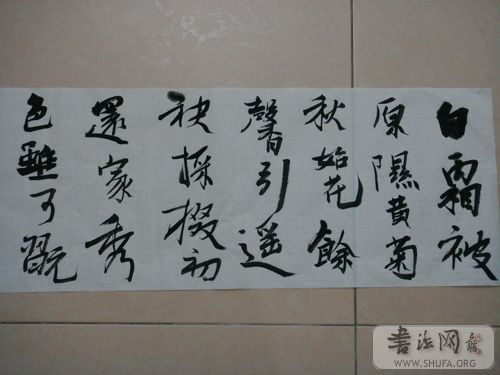 白霜被
原隰黄菊
秋始花餘
馨引遥
袂採掇初
還家秀
色雖可翫
書法网
WWW.SHUFA.ORG